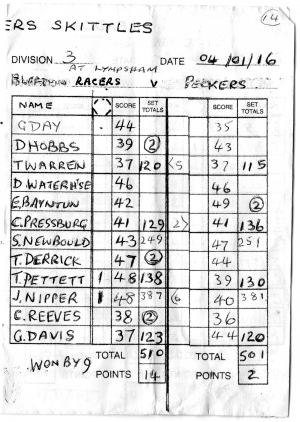 ERS SKITTLES
14
DIVISION 3 DATE 04/01/16
AT LYMPSHAM
BLEADON RACERS V PECKERS
NAME SCORE SET TOTALS SCORE SET TOTALS
G DAY . 44 35
D HOBBS 39 2 43
T WARREN 37 120 <5 37 115
D. WATERH'SE 46 46
E. BAYNTUN 42 49 2
C. PRESSBURG 41 129 2> 41 136
S. NEWBOULD 43 249 47 251
T. DERRICK 47 2 44
T. PETTETT 1 48 138 39 130
J. NIPPER 1 48 387 <6 40 381
C. REEVES 38 2 36
G. DAVIS 37 123 44 120
WON BY 9 TOTAL 510 TOTAL 501
POINTS 14 POINTS 2